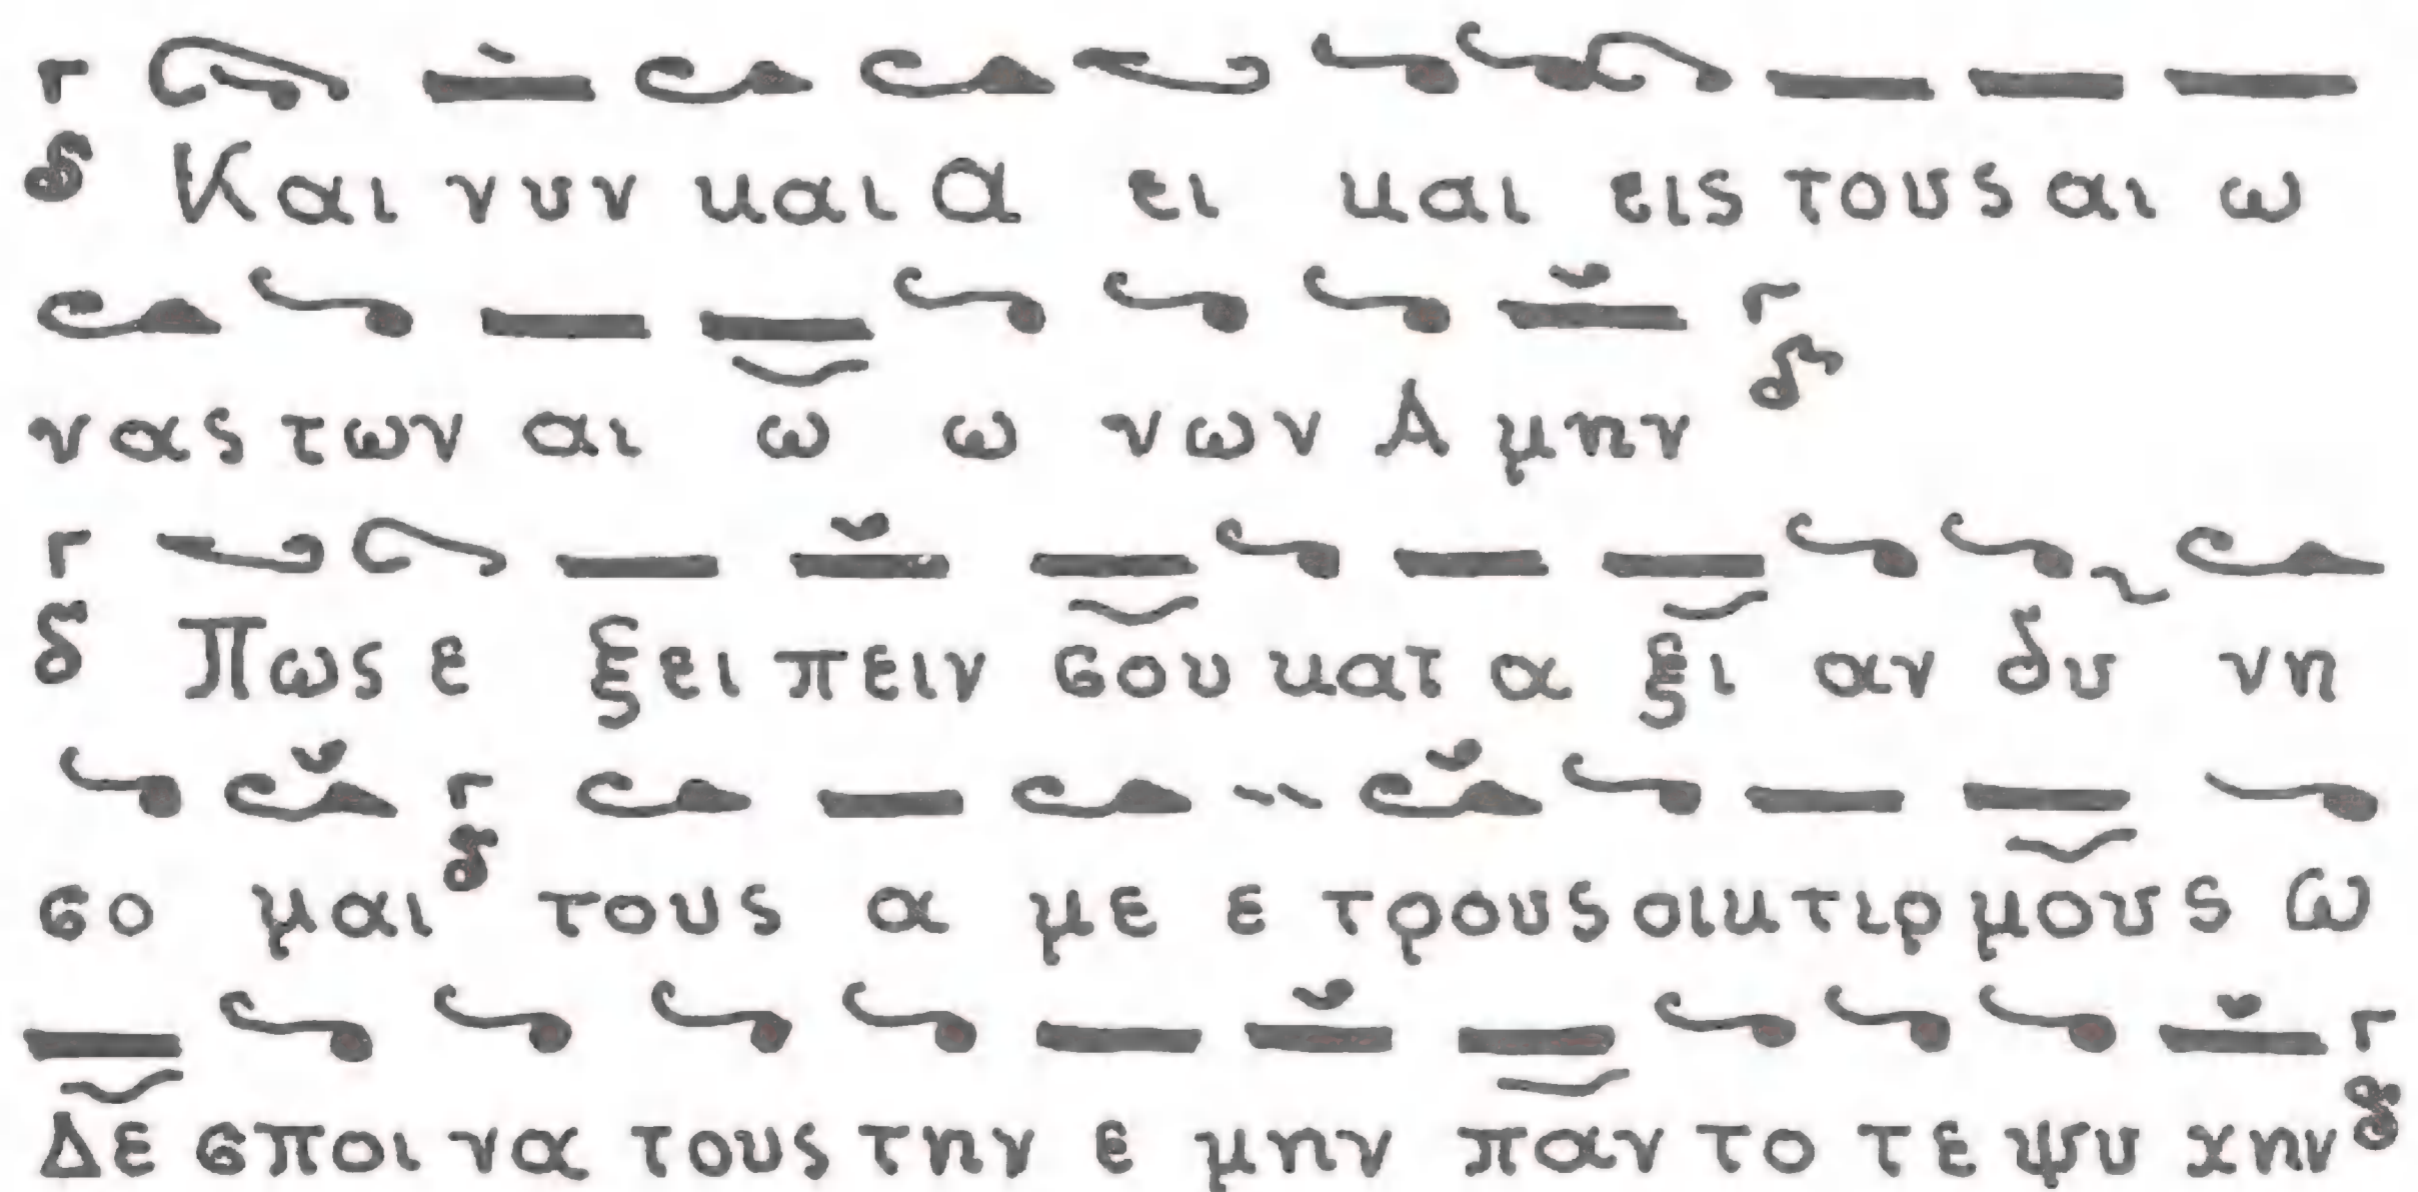 Και νυν και α ει και εις τους αι ω
νας των αι ω ω νων Α μην
Πως ε ξει πειν σου κατ α ξι αν δυ νη
σο μαι τους α με ε τρους οικτιρ μους ω
Δε σποι να τους την ε μην παν το τε ψυ χην